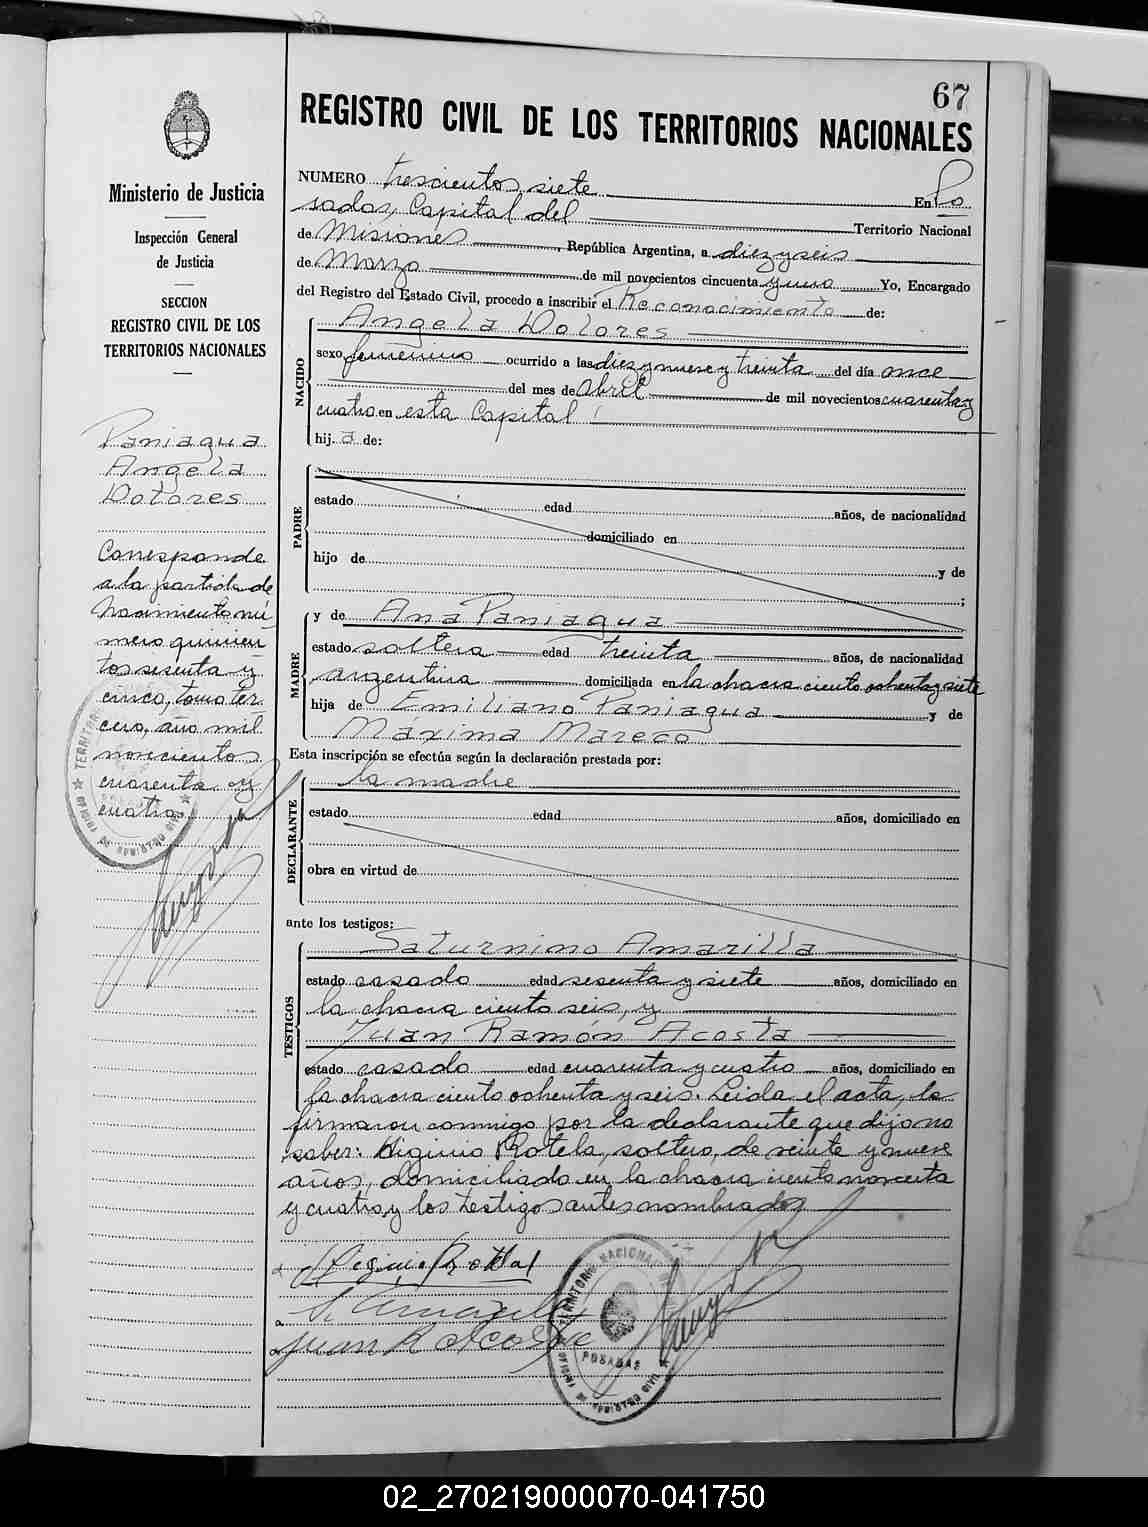 67
REGISTRO CIVIL DE LOS TERRITORIOS NACIONALES
Ministerio de Justicia
Inspección General
de Justicia
SECCION
REGISTRO CIVIL DE LOS
TERRITORIOS NACIONALES
Paniagua
Angela
Dolores
Corresponde
a la partida de
Nacimiento nú-
mero quinien
tos sesenta y
cinco, tomo ter-
cero, año mil
novecientos
cuarenta y
cuatro
NUMERO trescientos siete En Po
sadas, Capital del Territorio Nacional
de Misiones, República Argentina, a diez y seis
de Marzo de mil novecientos cincuenta y uno Yo, Encargado
del Registro del Estado Civil, procedo a inscribir el Reconocimiento de:
NACIDO
Angela Dolores
sexo femenino ocurrido a las diez y nueve y treinta del día once
del mes de Abril de mil novecientos cuarenta y
cuatro en esta Capital
hij. a de:
PADRE
estado edad años, de nacionalidad
domiciliado en
hijo de y de
;
MADRE
y de Ana Paniagua
estado soltera edad treinta años, de nacionalidad
argentina domiciliada en la chacra ciento ochenta y siete
hija de Emiliano Paniagua y de
Máxima Mareco
Esta inscripción se efectúa según la declaración prestada por:
DECLARANTE
la madre
estado edad años, domiciliado en
obra en virtud de
ante los testigos:
TESTIGOS
Saturnino Amarilla
estado casado edad sesenta y siete años, domiciliado en
la chacra ciento seis, y
Juan Ramón Acosta
estado casado edad cuarenta y cuatro años, domiciliado en
la chacra ciento ochenta y seis. Leida el acta, la
firmaron conmigo por la declarante que dijo no
saber: Higinio Rotela, soltero, de veinte y nueve
años, domiciliado en la chacra ciento noventa
y cuatro y los testigos antes nombrados
Higinio Rotela
S. Amarilla
Juan R Acosta
TERRITORIO NACIONAL
POSADAS
OFICINA DE REGISTRO CIVIL
02_270219000070-041750